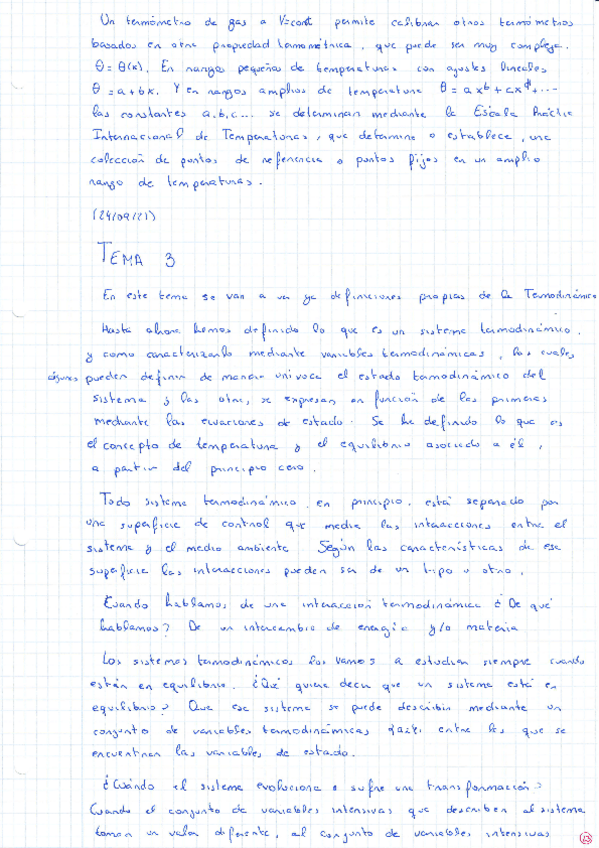 Un termómetro de gas a V=cont permite calibrar otros termómetros
basados en otra propiedad termométrica, que puede ser muy compleja.
θ = θ(x). En rangos pequeños de temperaturas con ajustes lineales
θ = a + bx. Y en rangos amplios de temperatura θ = a x^b + cx^d + ...
las constantes a, b, c... se determinan mediante la Escala Práctica
Internacional de Temperaturas, que determina o establece, una
colección de puntos de referencia o puntos fijos en un amplio
rango de temperaturas.
(24/09/21)
TEMA 3
En este tema se van a ver ya definiciones propias de la Termodinámica
Hasta ahora hemos definido lo que es un sistema termodinámico,
y como caracterizarlo mediante variables termodinámicas, las cuales
algunas pueden definir de manera univoca el estado termodinámico del
sistema y las otras, se expresan en función de las primeras
mediante las ecuaciones de estado. Se ha definido lo que es
el concepto de temperatura y el equilibrio asociado a él,
a partir del principio cero.
Todo sistema termodinámico, en principio, está separado por
una superficie de control que media las interacciones entre el
sistema y el medio ambiente. Según las características de esa
superficie las interacciones pueden ser de un tipo u otro.
Cuando hablamos de una interacción termodinámica ¿De qué
hablamos? De un intercambio de energía y/o materia
Los sistemas termodinámicos los vamos a estudiar siempre cuando
están en equilibrio. ¿Qué quiere decir que un sistema está en
equilibrio? Que ese sistema se puede describir mediante un
conjunto de variables termodinámicas entre las que se
encuentran las variables de estado.
¿Cuándo el sistema evoluciona o sufre una transformación?
Cuando el conjunto de variables intensivas que describen al sistema
toman un valor diferente, al conjunto de variables intensivas